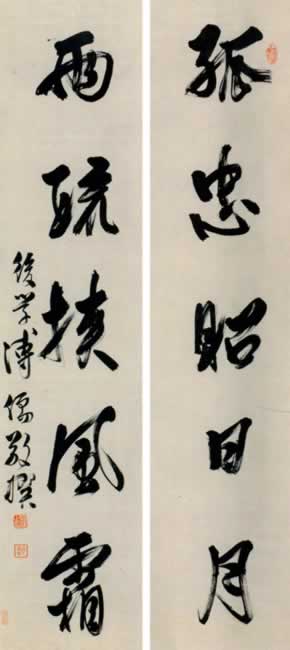 孤忠昭日月
兩疏挾風霜
後学溥儒敬撰